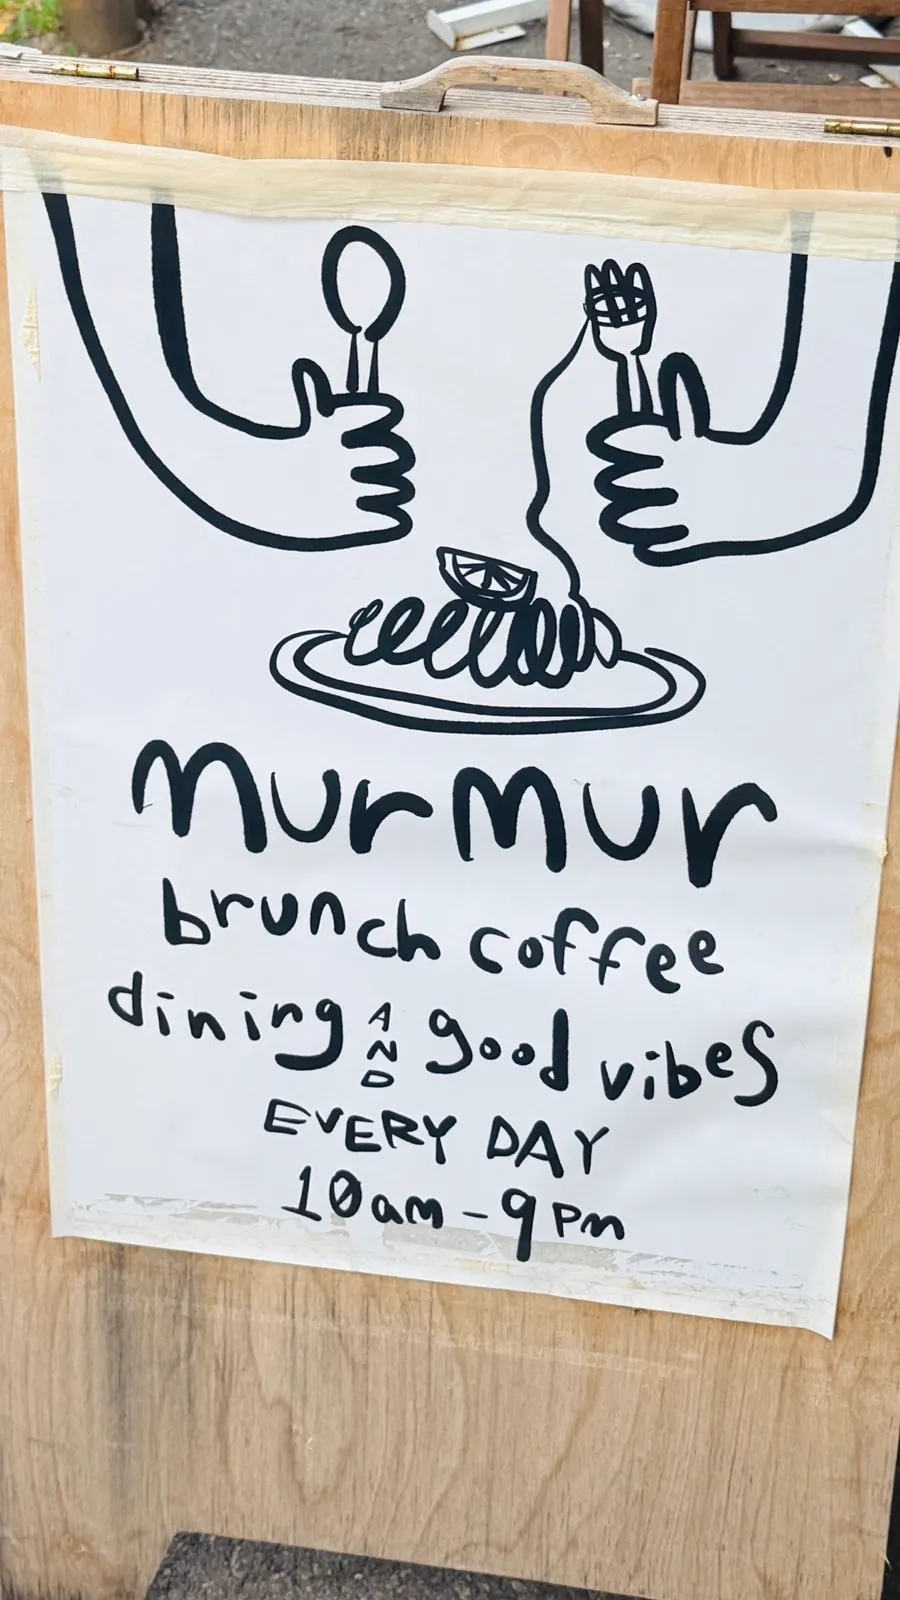 murmur
brunch coffee
dining AND good vibes
EVERY DAY
10am - 9pm